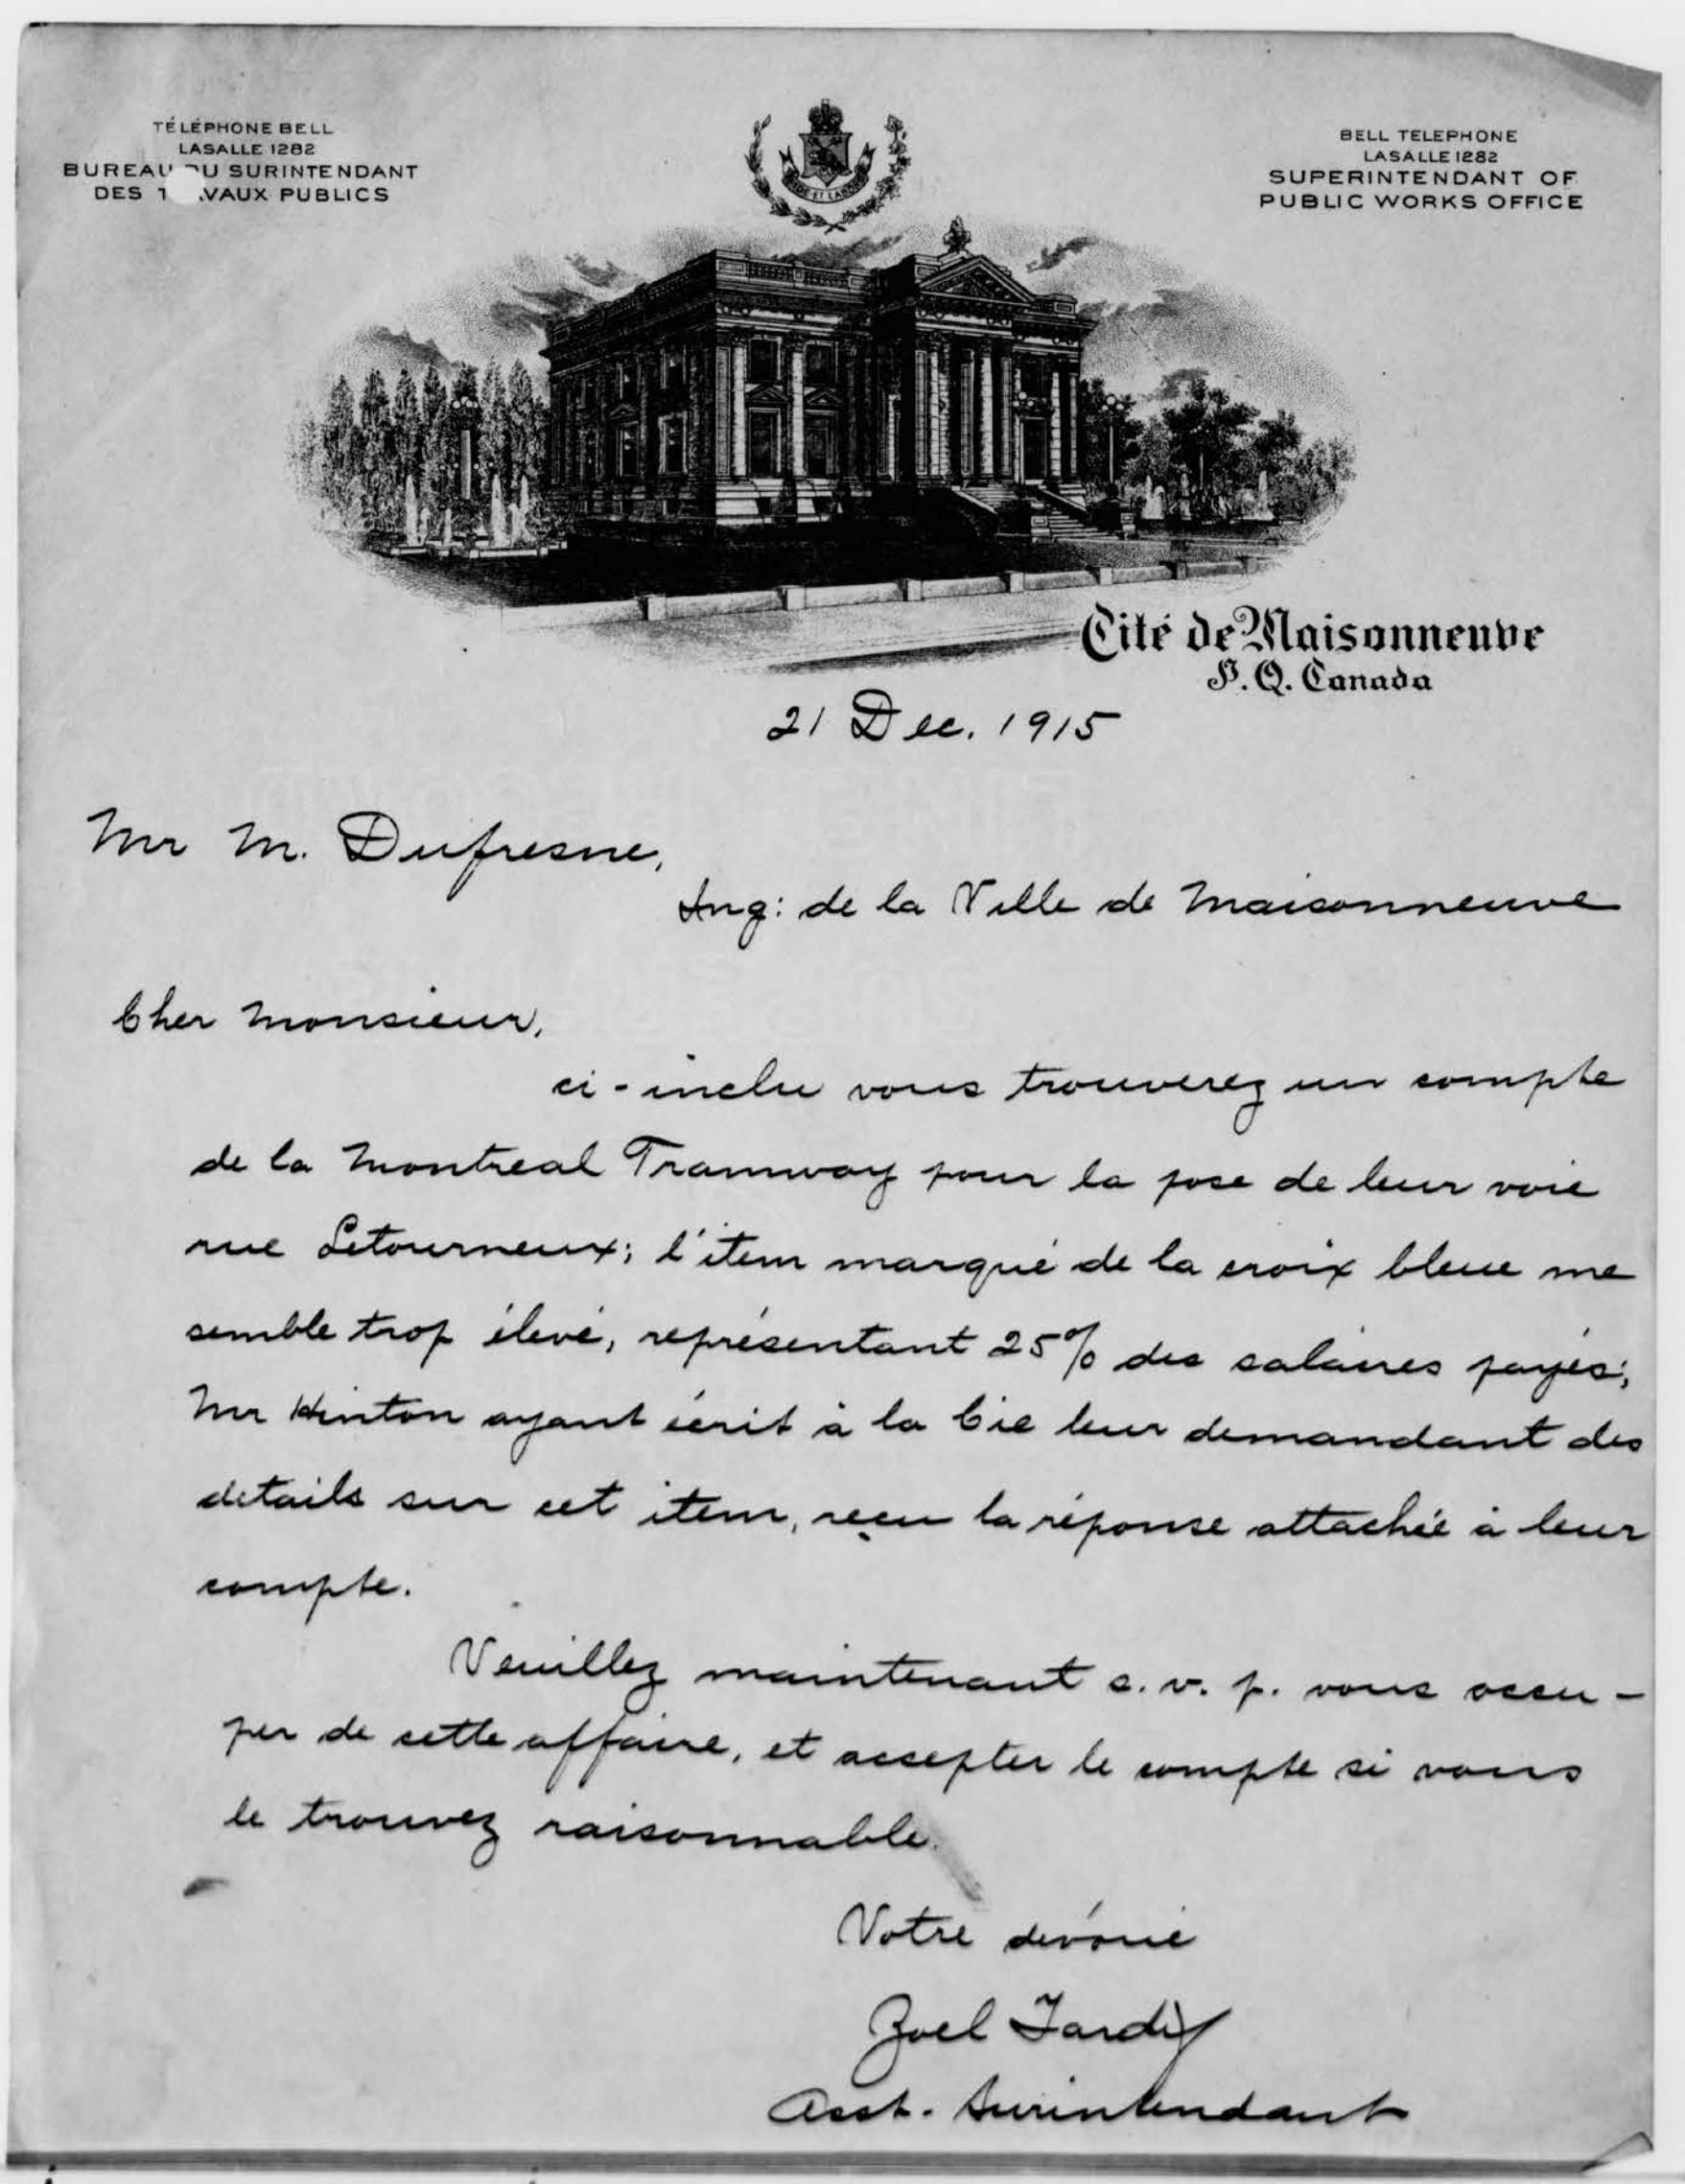 TÉLÉPHONE BELL
LASALLE 1282
BUREAU DU SURINTENDANT
DES T AVAUX PUBLICS
BELL TELEPHONE
LASALLE 1282
SUPERINTENDANT OF
PUBLIC WORKS OFFICE
ET LABOR
Cité de Maisonneuve
P. Q. Canada
21 Dec. 1915
Mr M. Dufresne,
Ing: de la Ville de Maisonneuve
Cher Monsieur,
ci-inclu vous trouverez un compte
de la Montreal Tramway pour la pose de leur voie
rue Letourneux; l'item marqué de la croix bleue me
semble trop élevé, représentant 25% des salaires payés;
Mr Hinton ayant écrit à la Cie leur demandant des
details sur cet item, reçu la réponse attachée à leur
compte.
Veuillez maintenant s. v. p. vous occu-
per de cette affaire, et accepter le compte si vous
le trouvez raisonnable.
Votre dévoué
Zoel Tardif
Asst. Surintendant